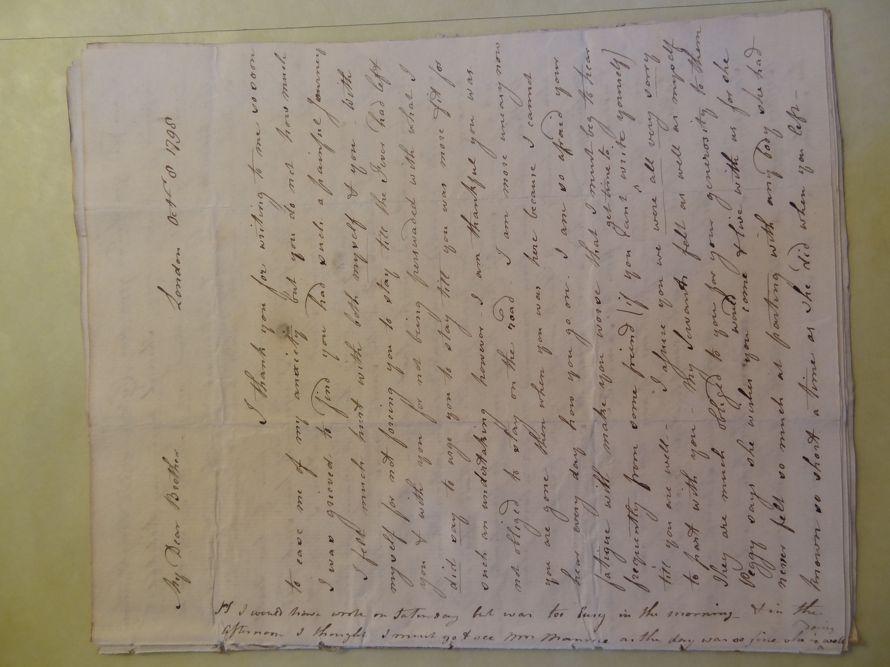 London Octr 8 1798
My Dear Brother
I thank you for writing to me so soon
to ease me of my anxiety but you do not how much
I was grieved to find you had such a painful Journey
I felt much hurt with both myself & you with
myself for not forcing you to stay till the Fever had left
you & with you for not being perswaded with what I
did say to urge you to stay till you was more fit for
such an undertaking however I am thankful you was
not obliged to stay on the road. I am more uneasy now
you are gone then when you was here because I cannot
hear every day how you go on. I am so afraid your
fatigue with make you worse that I must beg to hear
frequently from some friend (if you can't get time to write yourself)
till you are well - I assure you we were all very sorry
to part with you - My Servants felt as well as myself
They are much obliged to you for your generosity to them
Peggy says she wishes you would come & live with us for she
never felt so much at parting with any body she had
known so short a time as she did when you left -
PS I would have wrote on Saturday but was too busy in the morning & in the
afternoon I thought I must go & see Mrs as the day was so fine she is well